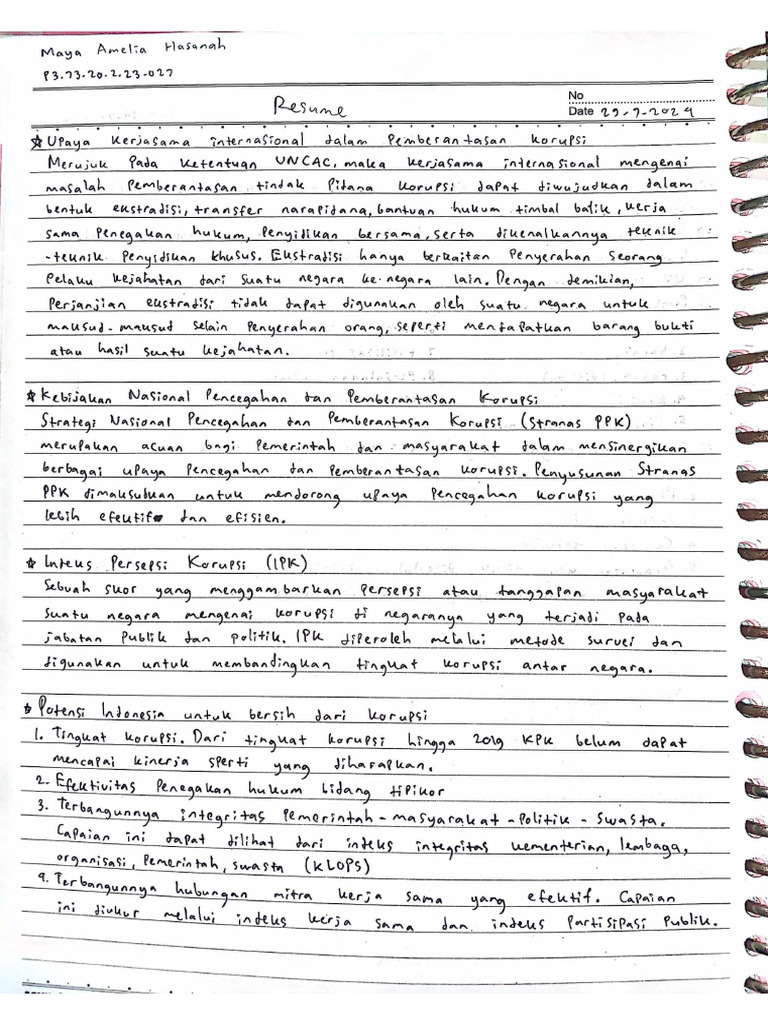 Maya Amelia Hasanah
P3.73.20.2.23.027
No
Resume
Date 29-7-2024
☆ Upaya Kerjasama internasional dalam Pemberantasan Korupsi
Merujuk Pada Ketentuan UNCAC, maka kerjasama internasional mengenai
masalah Pemberantasan tindak Pidana Korupsi dapat diwujudkan dalam
bentuk ekstradisi, transfer narapidana, bantuan hukum timbal balik, kerja
sama Penegakan hukum, Penyidikan bersama, serta dikenalkannya teknik
-teknik Penyidikan khusus. Ekstradisi hanya berkaitan Penyerahan Seorang
Pelaku kejahatan dari suatu negara ke negara lain. Dengan demikian,
Perjanjian ekstradisi tidak dapat digunakan oleh suatu negara untuk
maksud-maksud selain Penyerahan orang, seperti mendapatkan barang bukti
atau hasil suatu kejahatan.
☆ Kebijakan Nasional Pencegahan dan Pemberantasan Korupsi
Strategi Nasional Pencegahan dan Pemberantasan Korupsi (Stranas PPK)
merupakan acuan bagi Pemerintah dan masyarakat dalam mensinergikan
berbagai upaya Pencegahan dan Pemberantasan korupsi. Penyusunan Stranas
PPK dimaksudkan untuk mendorong upaya Pencegahan korupsi yang
lebih efektif dan efisien.
☆ Indeks Persepsi Korupsi (IPK)
Sebuah skor yang menggambarkan persepsi atau tanggapan masyarakat
suatu negara mengenai korupsi di negaranya yang terjadi pada
jabatan Publik dan politik. IPK diperoleh melalui metode survei dan
digunakan untuk membandingkan tingkat korupsi antar negara.
☆ Potensi Indonesia untuk bersih dari korupsi
1. Tingkat korupsi. Dari tingkat korupsi hingga 2019 KPK belum dapat
mencapai kinerja sperti yang diharapkan.
2. Efektivitas Penegakan hukum bidang tipikor
3. Terbangunnya integritas Pemerintah-masyarakat-Politik-Swasta.
Capaian ini dapat dilihat dari indeks integritas kementerian, lembaga,
organisasi, Pemerintah, swasta (KLOPS)
4. Terbangunnya hubungan mitra kerja sama yang efektif. Capaian
ini diukur melalui indeks kerja sama dan indeks Partisipasi Publik.